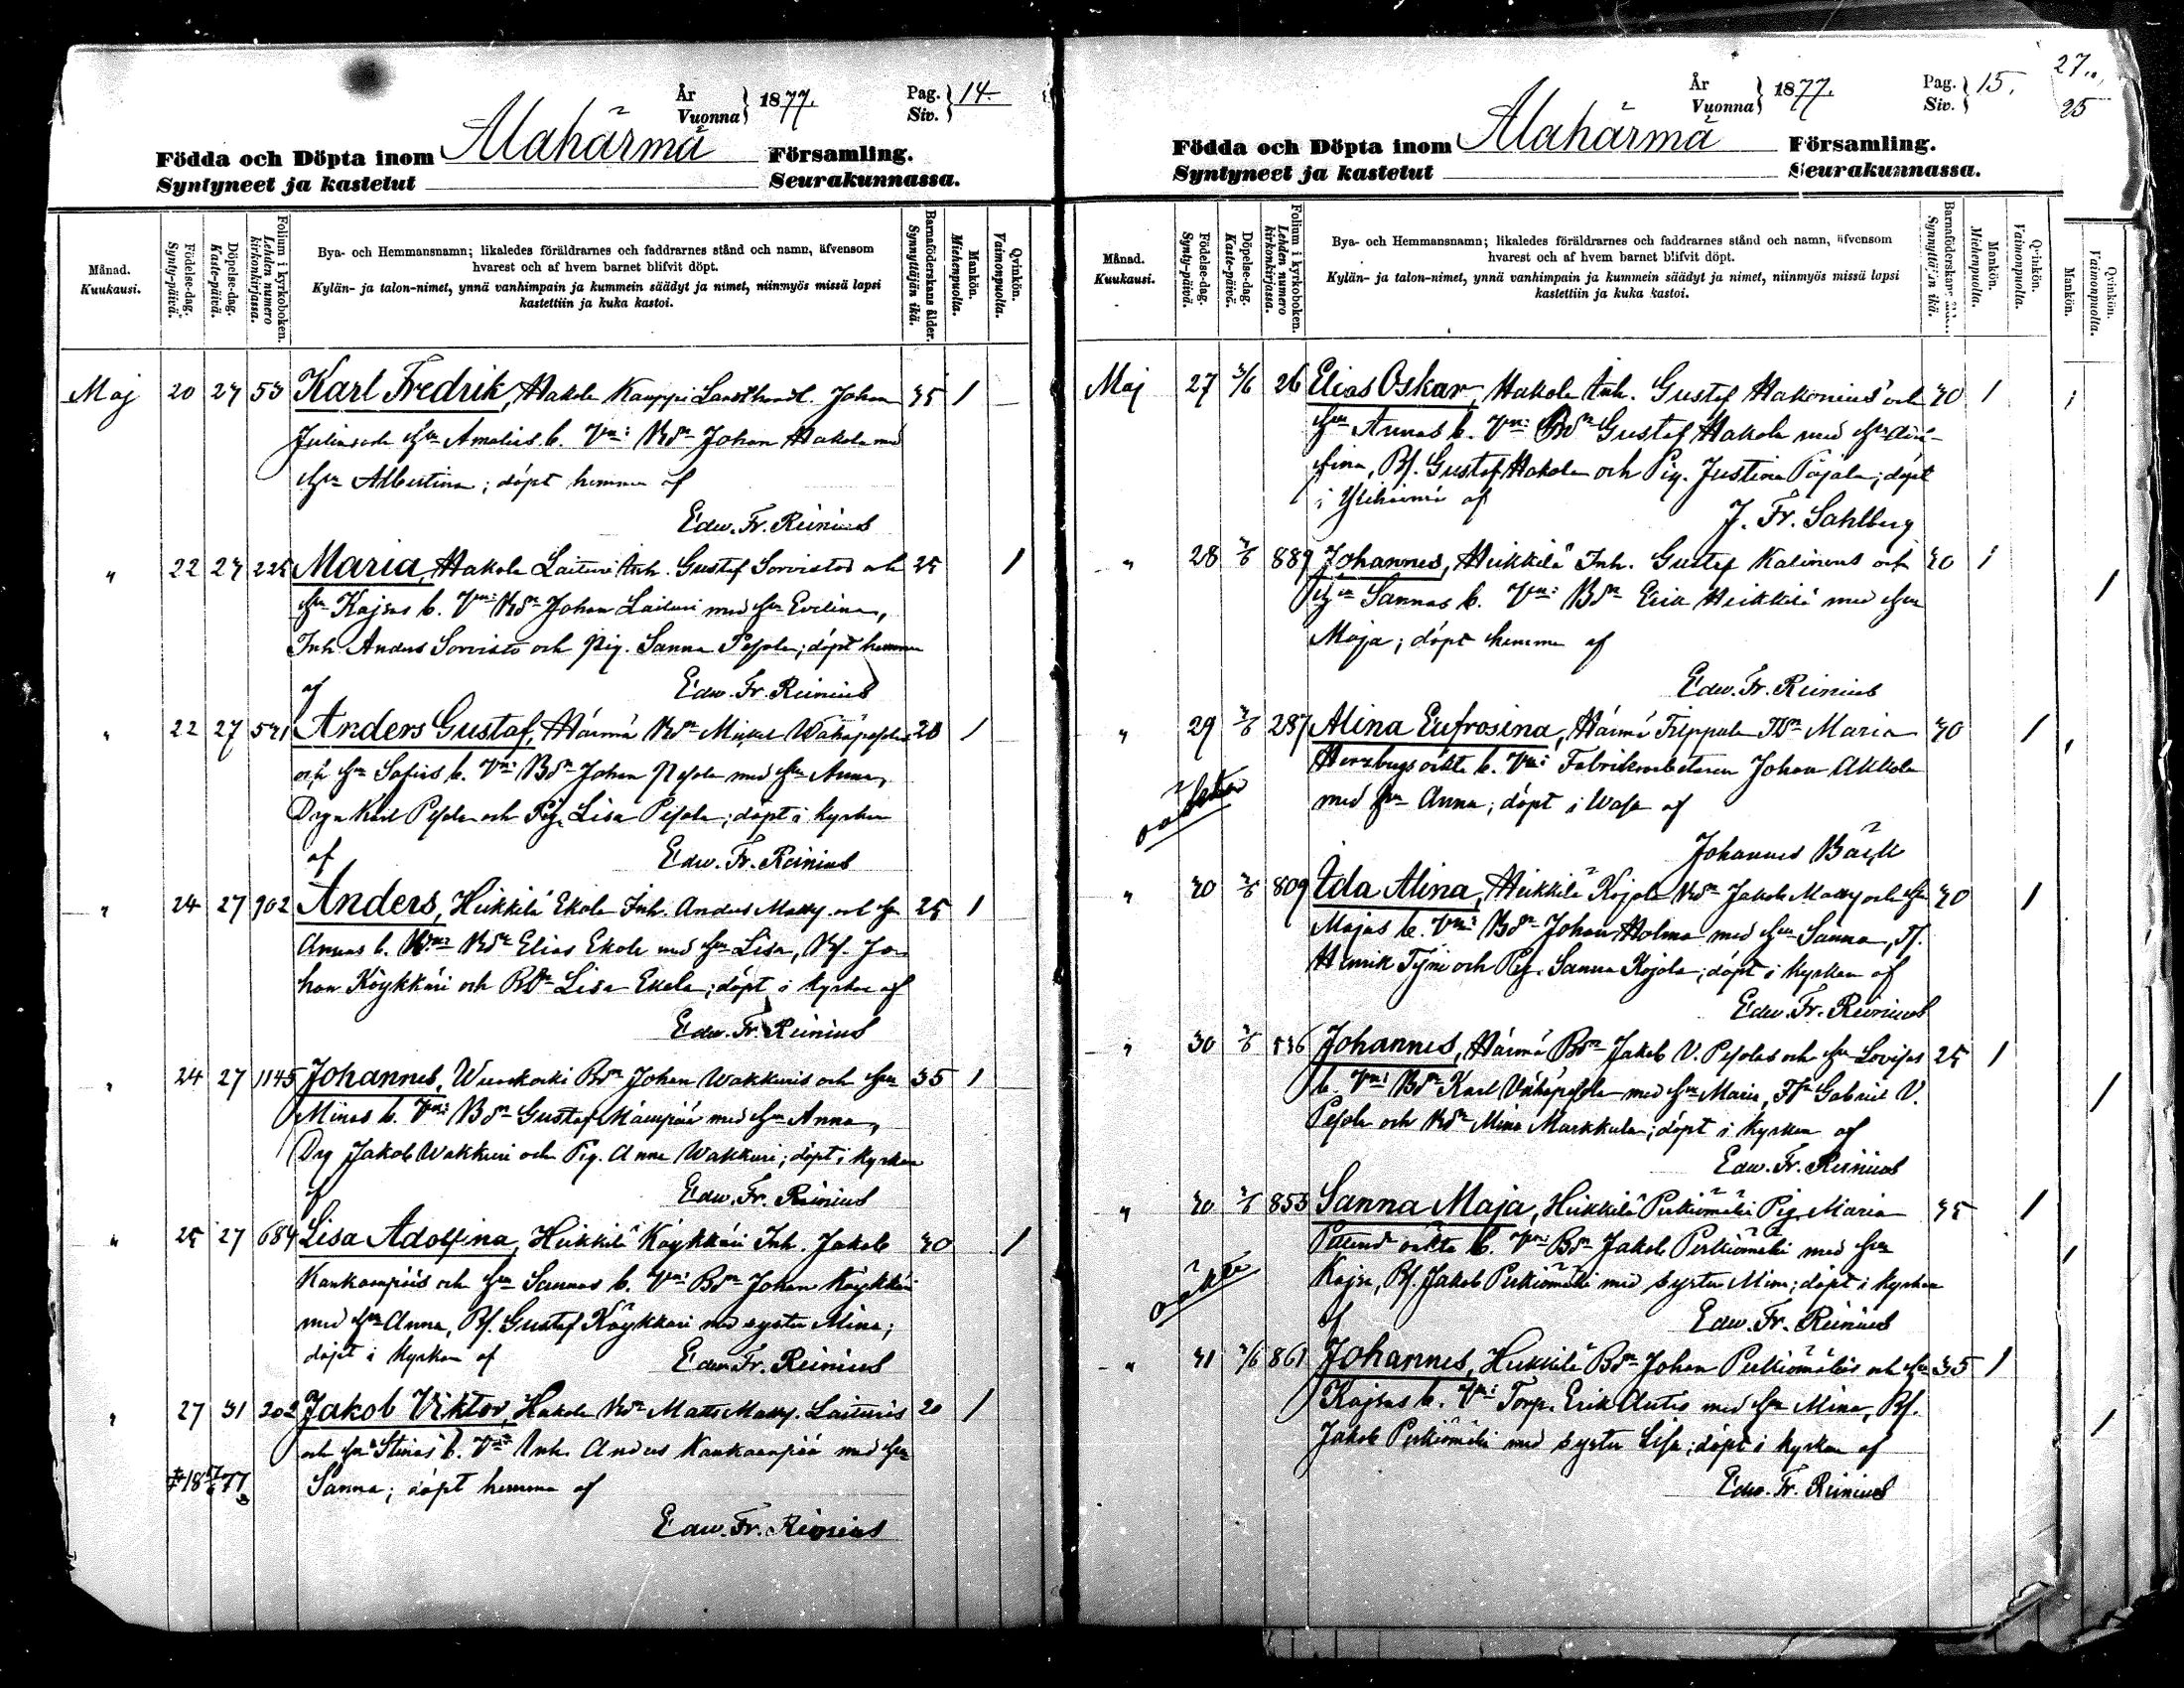 År
Vuonna } 1877. Pag.
Siv. } 14.
Födda och Döpta inom Alahärmä Församling.
Syntyneet ja kastetut Seurakunnassa.
Månad.
Kuukausi.
Födelse-dag.
Synty-päivä.
Döpelse-dag.
Kaste-päivä.
Folium i kyrkoboken.
Lehden numero
kirkonkirjassa.
Bya- och Hemmansnamn; likaledes föräldrarnes och faddrarnes stånd och namn, äfvensom
hvarest och af hvem barnet blifvit döpt.
Kylän- ja talon-nimet, ynnä vanhimpain ja kummein säädyt ja nimet, niinmyös missä lapsi
kastettiin ja kuka kastoi.
Barnaföderskans ålder.
Synnyttäjän ikä.
Mankön.
Miehenpuolta.
Qvinkön.
Vaimonpuolta.
Maj 20 27 53 Karl Fredrik, Hakola Kauppi Johan 35 1
hr Amalias b. Vn: Bdn Johan Hakola med
hr Albertina; döpt hemma af
Edw. Fr. Reinius
" 22 27 225 Maria, Hakola Laituri Inh. Gustaf Sorvistos och 25 1
hr Kajsas b. Vn: Bdn Johan Laituri med hr Evelina,
Inh Anders Sorvisto och pig. Sanna Pesola; döpt hemma
af Edw. Fr. Reinius
" 22 27 541 Anders Gustaf, Härmä Bdn Mickel Wähäpesolas 20 1
och hr Sofias b. Vn: Bdn Johan Pesola med hr Anna,
Drgn Karl Pesola och Pig. Lisa Pesola; döpt i kyrkan
af Edw. Fr. Reinius
" 24 27 902 Anders, Heikkilä Ekola Inh. Anders Matts. och hr 25 1
Annas b. Vn: Bdn Elias Ekola med hr Lisa, Bs. Jo-
han Köykkäri och Lisa Ekola; döpt i kyrkan af
Edw. Fr. Reinius
" 24 27 1145 Johannes, Wuoskoski Bdn Johan Wakkuris och hr 35 1
Minas b. Vn: Bdn Gustaf Mäenpää med hr Anna,
Drg Jakob Wakkuri och Pig. Anna Wakkuri; döpt i kyrkan
af Edw. Fr. Reinius
" 25 27 684 Lisa Adolfina, Heikkilä Köykkäri Inh. Jakob 30 1
Kankaanpääs och hr Sannas b. Vn: Bdn Johan Köykkäri
med hr Anna, Bs. Gustaf Köykkäri med syster Mina;
döpt i kyrkan af Edw. Fr. Reinius
" 27 31 202 Jakob Viktor, Hakola Bdn Matts Matts. Laituris 20 1
och hr Stinas b. Vn: Inh. Anders Kankaanpää med hr
Sanna; döpt hemma af
Edw. Fr. Reinius
År
Vuonna } 1877. Pag.
Siv. } 15.
27.
25
Födda och Döpta inom Alahärmä Församling.
Syntyneet ja kastetut Seurakunnassa.
Månad.
Kuukausi.
Födelse-dag.
Synty-päivä.
Döpelse-dag.
Kaste-päivä.
Folium i kyrkoboken.
Lehden numero
kirkonkirjassa.
Bya- och Hemmansnamn; likaledes föräldrarnes och faddrarnes stånd och namn, äfvensom
hvarest och af hvem barnet blifvit döpt.
Kylän- ja talon-nimet, ynnä vanhimpain ja kummein säädyt ja nimet, niinmyös missä lapsi
kastettiin ja kuka kastoi.
Barnaföderskans
Synnyttäjän ikä.
Mankön.
Miehenpuolta.
Qvinkön.
Vaimonpuolta.
Mankön.
Qvinkön.
Vaimonpuolta.
Maj 27 3/6 26 Elias Oskar, Hakola Inh. Gustaf Hakonius och 30 1
hr Annas b. Vn: Bdn Gustaf Hakola med hr
Bs. Gustaf Hakola och Pig. Justina döpt
i Ylihärmä af J. Fr. Sahlberg
" 28 3/6 889 Johannes, Heikkilä Inh. Gustaf och 30 1
hr Sannas b. Vn: Bdn Erik Heikkilä med hr
Maja; döpt hemma af
Edw. Fr. Reinius
" 29 3/6 287 Alina Eufrosina, Härmä Filppula Maria 30 1
oäkta b. Vn: Fabriksarbetaren Johan Akkola
med hr Anna; döpt i Wasa af
oäkta
Johannes Bäck
" 30 3/6 809 Ida Alina, Heikkilä Kojola Bdn Jakob Matts. och hr 30 1
Majas b. Vn: Bdn Johan Holma med hr Sanna,
Henrik och Pig. Sanna Kojola; döpt i kyrkan af
Edw. Fr. Reinius
" 30 3/6 536 Johannes, Härmä Bdn Jakob V. Pesolas och hr Lovisas 25 1
b. Vn: Bdn Karl Vähäpesola med hr Maria, Gabriel V.
Pesola och Mina Markkula; döpt i kyrkan af
Edw. Fr. Reinius
" 30 3/6 853 Sanna Maja, Heikkilä Perkiömäki Pig. Maria 35 1
oäkta b. Vn: Bdn Jakob Perkiömäki med hr
Kajsa, Bs. Jakob Perkiömäki med syster Mina; döpt i kyrkan
oäkta
af Edw. Fr. Reinius
" 31 3/6 861 Johannes, Heikkilä Bdn Johan Perkiömäkis och hr 35 1
Kajsas b. Vn: Torp. Erik med hr Mina, Bs.
Jakob Perkiömäki med syster Lisa; döpt i kyrkan af
Edw. Fr. Reinius